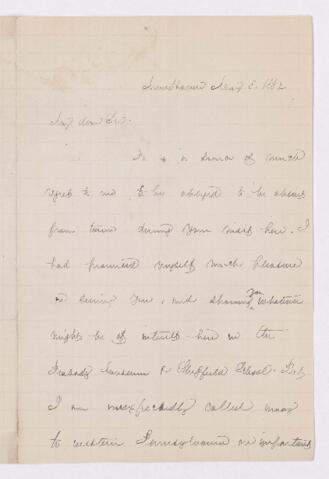 New Haven May 8. 1882
My dear Sir.
It is a source of much
regret to me to be obliged to be absent
from town during your visit here. I
had promised myself much pleasure
in seeing you, and showing you whatever
might be of interest here in the
Peabody Museum & Sheffield School. But
I am unexpectedly called away
to western Pennsylvania on important